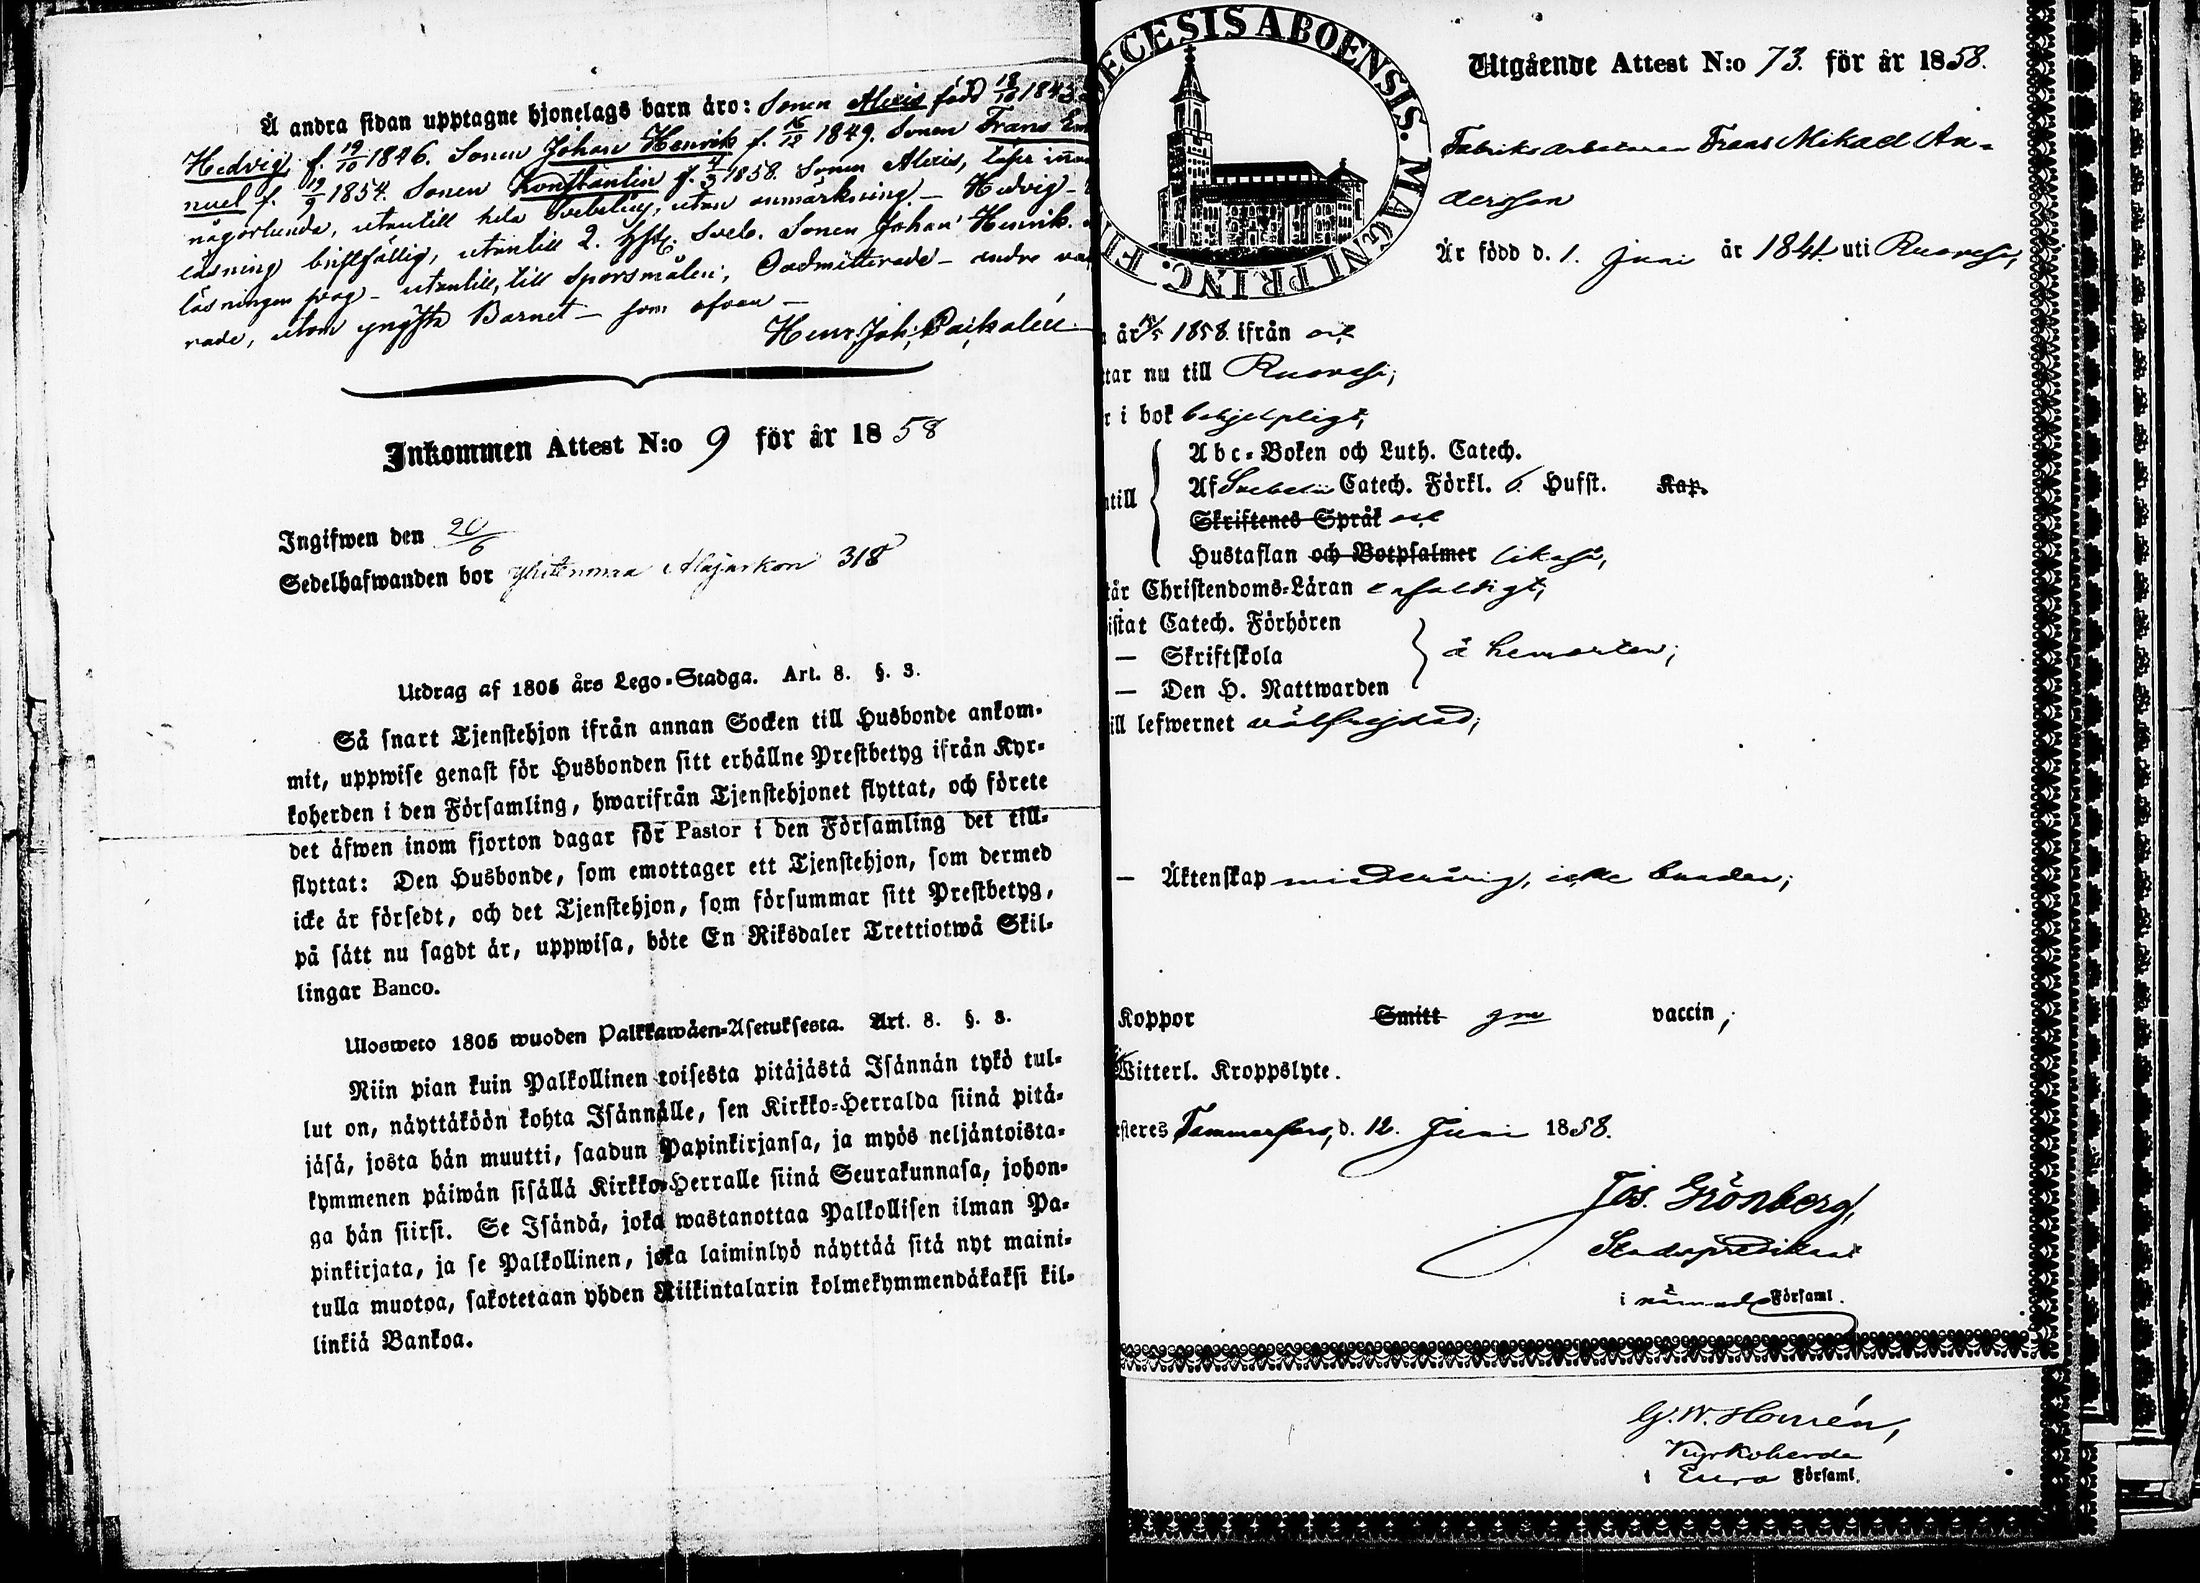 Å andra sidan upptagne hjonelags barn äro: Sonen Alexis född 18/10 1843
Hedvig f. 19/10 1846. Sonen Johan Henrik f. 16/12 1849. Sonen Frans Em
nuel f. 19/9 1854. Sonen Konstantin f. 4/3 1858. Sonen Alexis, läser innan
någorlunda, utantill hela Svebelius, utan anmärkning. – Hedvig –
läsning bristfällig, utantill 2. Hfst. Sveb. Sonen Johan Henrik.
läsningen svag – utantill, till Spörsmålen, Oadmitterade – andra va
rade, utom yngsta Barnet – som ofvan –
Henr. Joh.
Inkommen Attest N:o 9 för år 1858
Ingifwen den 20/6
Sedelhafwanden bor Alajärkon 318
Utdrag af 1805 års Lego-Stadga. Art. 8. §. 3.
Så snart Tjenstehjon ifrån annan Socken till Husbonde ankom-
mit, uppwise genast för Husbonden sitt erhållne Prestbetyg ifrån Kyr-
koherden i den Församling, hwarifrån Tjenstehjonet flyttat, och förete
det äfwen inom fjorton dagar för Pastor i den Församling det till-
flyttat: Den Husbonde, som emottager ett Tjenstehjon, som dermed
icke är försedt, och det Tjenstehjon, som försummar sitt Prestbetyg,
på sätt nu sagdt är, uppwisa, böte En Riksdaler Trettiotwå Skil-
lingar Banco.
Ulosweto 1805 wuoden Palkkawäen-Asetuksesta. Art. 8. §. 3.
Niin pian kuin Palkollinen toisesta pitäjästä Isännän tykö tul-
lut on, näyttäköön kohta Isännälle, sen Kirkko-Herralda siinä pitä-
jäsä, josta hän muutti, saadun Papinkirjansa, ja myös neljäntoista-
kymmenen päiwän sisällä Kirkko-Herralle siinä Seurakunnasa, johon-
ga hän siirsi. Se Isändä, joka wastanottaa Palkollisen ilman Pa-
pinkirjata, ja se Palkollinen, joka laiminlyö näyttää sitä nyt maini-
tulla muotoa, sakotetaan yhden Riikintalarin kolmekymmendäkaksi kil-
linkiä Bankoa.
ECESIS ABOENSIS. MAGNI PRINC. FI
Utgående Attest N:o 73. för år 1858.
Fabriks arbetaren Frans Mikael An-
dersson
Är född d. 1. Juni år 1841 uti Ruovesi,
år 1858. ifrån
tar nu till Ruovesi;
r i bok behjelpligt,
Abc-Boken och Luth. Catech.
ntill Af Svebelii Catech. Förkl. 6. Hufst. Kap.
Skriftenes Språk
Hustaflan och Botpsalmer likaså,
tår Christendoms-Läran enfaldigt;
istat Catech. Förhören
— Skriftskola å hemorten;
— Den H. Nattwarden
ill lefwernet välfrejdad;
— Äktenskap minderårig, icke bunden;
Koppor Smitt gm vaccin;
Witterl. Kroppslyte.
esteres Tammerfors, d. 12. Juni 1858.
Jos. Grönberg,
Stadspredikant
i nämnde Församl.
G. W. Homén,
Kyrkoherde
i Eura Församl.